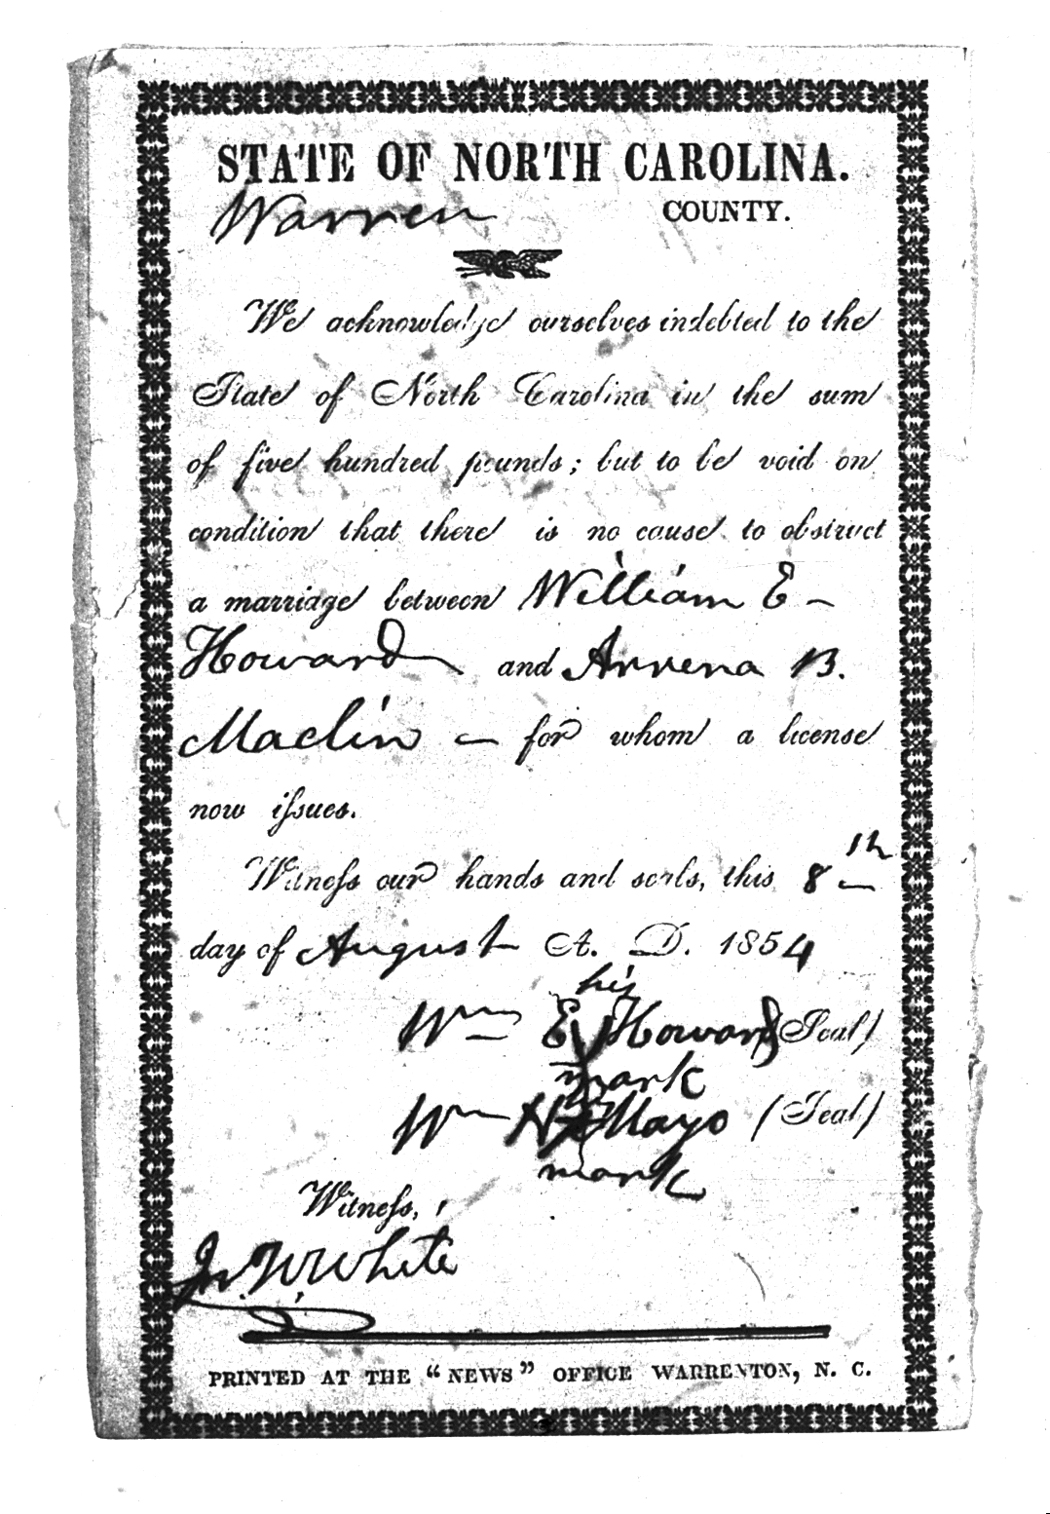 STATE OF NORTH CAROLINA.
Warren COUNTY.
We acknowledge ourselves indebted to the
State of North Carolina in the sum
of five hundred pounds; but to be void on
condition that there is no cause to obstruct
a marriage between William E -
Howard and Arrena B.
Maclin - for whom a license
now iſsues.
Witneſs our hands and seals, this 8th
day of August A. D. 1854
his
Wm E Howard (Seal)
mark
Wm H Mayo (Seal)
mark
Witneſs,
W. White
PRINTED AT THE "NEWS" OFFICE WARRENTON, N. C.